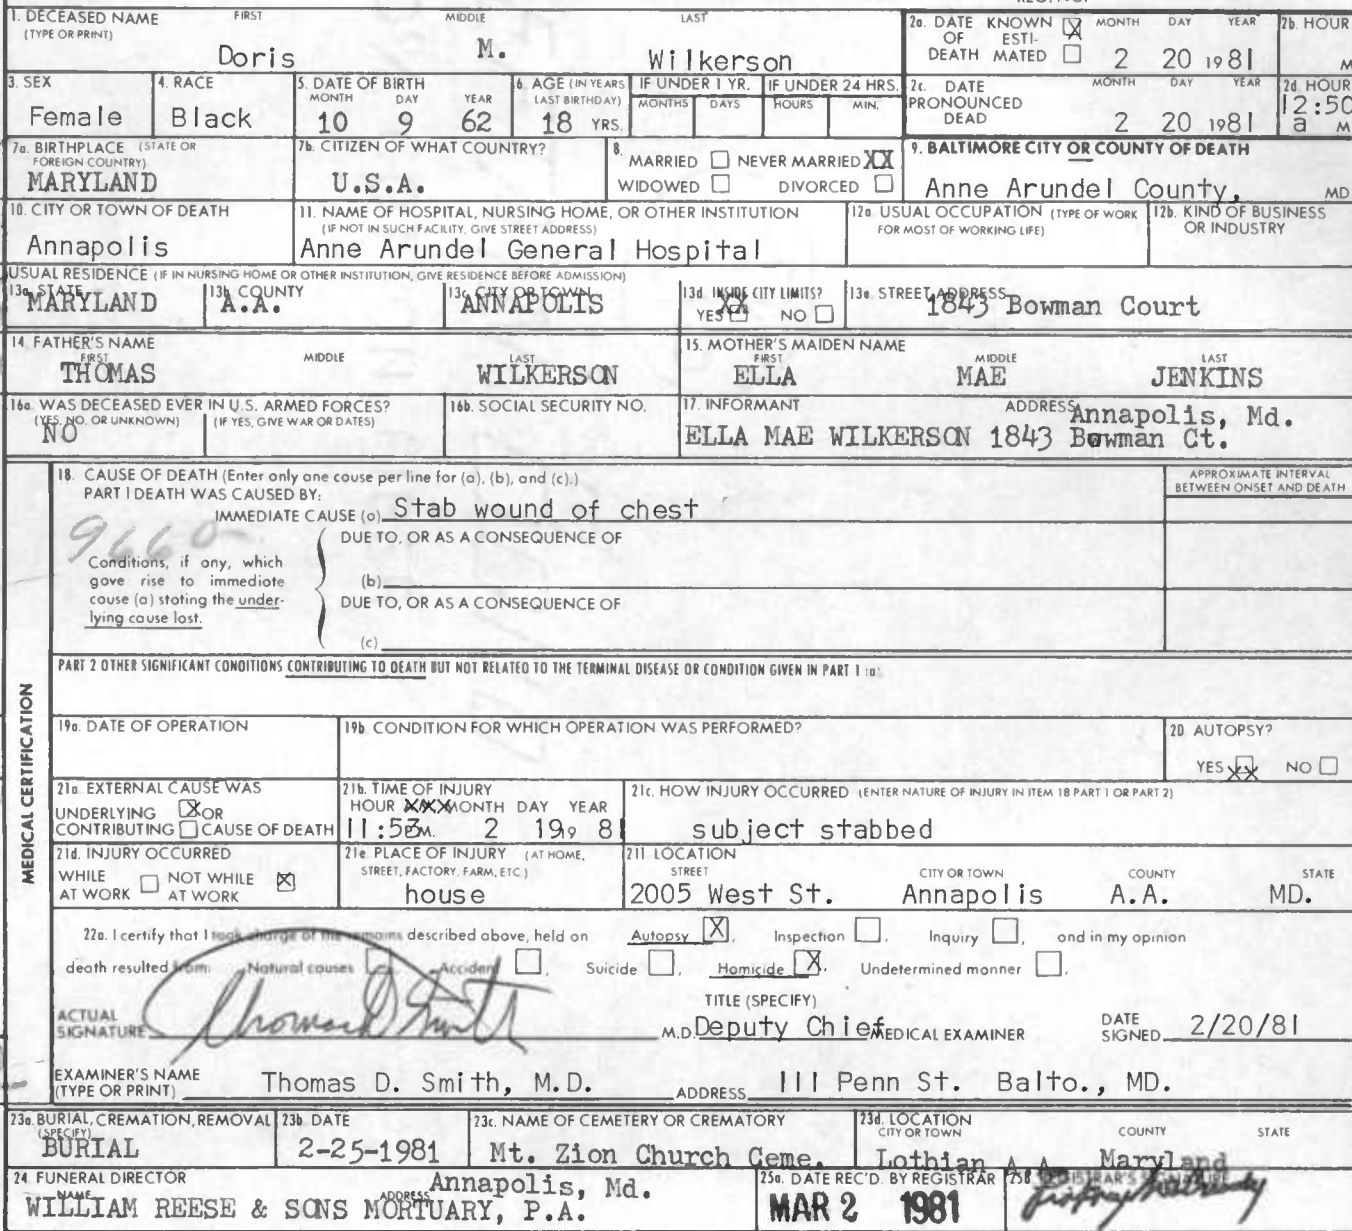 1. DECEASED NAME FIRST MIDDLE LAST
(TYPE OR PRINT)
Doris M. Wilkerson
2a. DATE OF DEATH KNOWN [X] ESTIMATED [ ] MONTH DAY YEAR
2 20 1981
2b. HOUR
M
3. SEX
Female
4. RACE
Black
5. DATE OF BIRTH
MONTH DAY YEAR
10 9 62
6. AGE (IN YEARS LAST BIRTHDAY)
18 YRS.
IF UNDER 1 YR.
MONTHS DAYS
IF UNDER 24 HRS.
HOURS MIN.
2c. DATE PRONOUNCED DEAD MONTH DAY YEAR
2 20 1981
2d. HOUR
12:50
a M
7a. BIRTHPLACE (STATE OR FOREIGN COUNTRY)
MARYLAND
7b. CITIZEN OF WHAT COUNTRY?
U.S.A.
8.
MARRIED [ ] NEVER MARRIED XX
WIDOWED [ ] DIVORCED [ ]
9. BALTIMORE CITY OR COUNTY OF DEATH
Anne Arundel County, MD
10. CITY OR TOWN OF DEATH
Annapolis
11. NAME OF HOSPITAL, NURSING HOME, OR OTHER INSTITUTION
(IF NOT IN SUCH FACILITY, GIVE STREET ADDRESS)
Anne Arundel General Hospital
12a. USUAL OCCUPATION (TYPE OF WORK FOR MOST OF WORKING LIFE)
12b. KIND OF BUSINESS OR INDUSTRY
USUAL RESIDENCE (IF IN NURSING HOME OR OTHER INSTITUTION, GIVE RESIDENCE BEFORE ADMISSION)
13a. STATE
MARYLAND
13b. COUNTY
A.A.
13c. CITY OR TOWN
ANNAPOLIS
13d. INSIDE CITY LIMITS?
YES XX NO [ ]
13e. STREET ADDRESS
1843 Bowman Court
14. FATHER'S NAME
FIRST MIDDLE LAST
THOMAS WILKERSON
15. MOTHER'S MAIDEN NAME
FIRST MIDDLE LAST
ELLA MAE JENKINS
16a. WAS DECEASED EVER IN U.S. ARMED FORCES?
(YES, NO, OR UNKNOWN) (IF YES, GIVE WAR OR DATES)
NO
16b. SOCIAL SECURITY NO.
17. INFORMANT ADDRESS Annapolis, Md.
ELLA MAE WILKERSON 1843 Bowman Ct.
MEDICAL CERTIFICATION
18. CAUSE OF DEATH (Enter only one cause per line for (a), (b), and (c).)
PART I DEATH WAS CAUSED BY:
IMMEDIATE CAUSE (a) Stab wound of chest
APPROXIMATE INTERVAL
BETWEEN ONSET AND DEATH
9660
DUE TO, OR AS A CONSEQUENCE OF
Conditions, if any, which
gave rise to immediate
cause (a) stating the under-
lying cause last.
(b)
DUE TO, OR AS A CONSEQUENCE OF
(c)
PART 2 OTHER SIGNIFICANT CONDITIONS CONTRIBUTING TO DEATH BUT NOT RELATED TO THE TERMINAL DISEASE OR CONDITION GIVEN IN PART 1 (a)
19a. DATE OF OPERATION
19b. CONDITION FOR WHICH OPERATION WAS PERFORMED?
20. AUTOPSY?
YES XX NO [ ]
21a. EXTERNAL CAUSE WAS
UNDERLYING [X] OR
CONTRIBUTING [ ] CAUSE OF DEATH
21b. TIME OF INJURY
HOUR XXX MONTH DAY YEAR
11:53 P.M. 2 19, 9 81
21c. HOW INJURY OCCURRED (ENTER NATURE OF INJURY IN ITEM 18 PART 1 OR PART 2)
subject stabbed
21d. INJURY OCCURRED
WHILE AT WORK [ ] NOT WHILE AT WORK [X]
21e. PLACE OF INJURY (AT HOME, STREET, FACTORY, FARM, ETC.)
house
21f. LOCATION
STREET CITY OR TOWN COUNTY STATE
2005 West St. Annapolis A.A. MD.
22a. I certify that I took charge of the remains described above, held on Autopsy [X], Inspection [ ], Inquiry [ ], and in my opinion
death resulted from: Natural causes [ ], Accident [ ], Suicide [ ], Homicide [X], Undetermined manner [ ].
TITLE (SPECIFY)
ACTUAL SIGNATURE Thomas D Smith M.D. Deputy Chief MEDICAL EXAMINER DATE SIGNED 2/20/81
EXAMINER'S NAME
(TYPE OR PRINT) Thomas D. Smith, M.D. ADDRESS 111 Penn St. Balto., MD.
23a. BURIAL, CREMATION, REMOVAL
(SPECIFY)
BURIAL
23b. DATE
2-25-1981
23c. NAME OF CEMETERY OR CREMATORY
Mt. Zion Church Ceme.
23d. LOCATION
CITY OR TOWN COUNTY STATE
Lothian A A Maryland
24. FUNERAL DIRECTOR
NAME ADDRESS Annapolis, Md.
WILLIAM REESE & SONS MORTUARY, P.A.
25a. DATE REC'D. BY REGISTRAR
MAR 2 1981
25b. REGISTRAR'S SIGNATURE